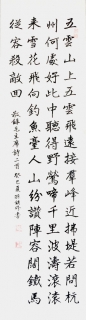 五雲山上五雲飛遠接群峰近拂堤若問杭
州何處好此中聽得野鶯啼千里波濤滚滚
來雪花飛向釣魚臺人山紛讚陣容闊鐵馬
從容殺敵回
敬錄毛主席詩二首癸巳夏書